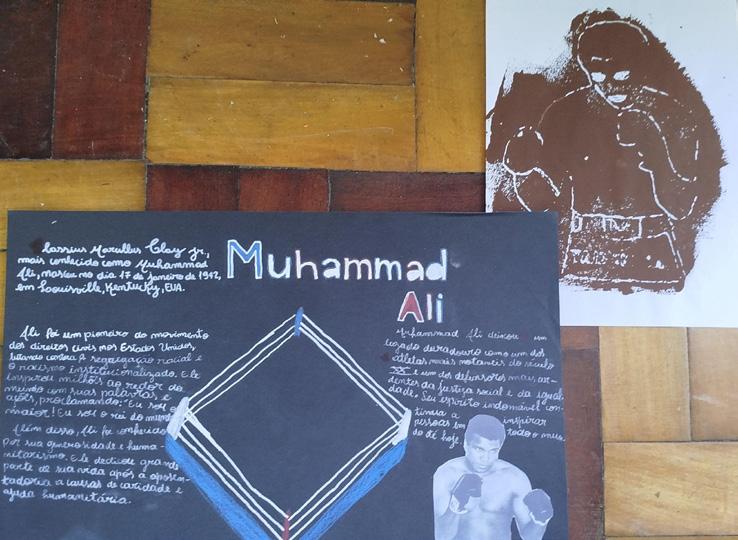 Cassius Marcellus Clay jr.,
mais conhecido como Muhammad
Ali, nasceu no dia 17 de janeiro de 1942,
em Louisville, Kentucky, EUA.
Muhammad
Ali
Ali foi um pioneiro do movimento
dos direitos civis nos Estados Unidos,
lutando contra a segregação racial e
o racismo institucionalizado. Ele
inspirou milhões ao redor do
mundo com suas palavras e
ações, proclamando: "Eu sou o
maior! Eu sou o rei do mundo
Além disso, Ali foi conhecido
por sua generosidade e huma-
nitarismo. Ele dedicou grande
parte de sua vida após a aposen-
tadoria a causas de caridade e
ajuda humanitária.
Muhammad Ali deixou um
legado duradouro como um dos
atletas mais notáveis do século
XX e um dos defensores mais ar-
dentes da justiça social e da igual-
dade. Seu espírito indomável con-
tinua a inspirar
pessoas em todo o mun-
do até hoje.